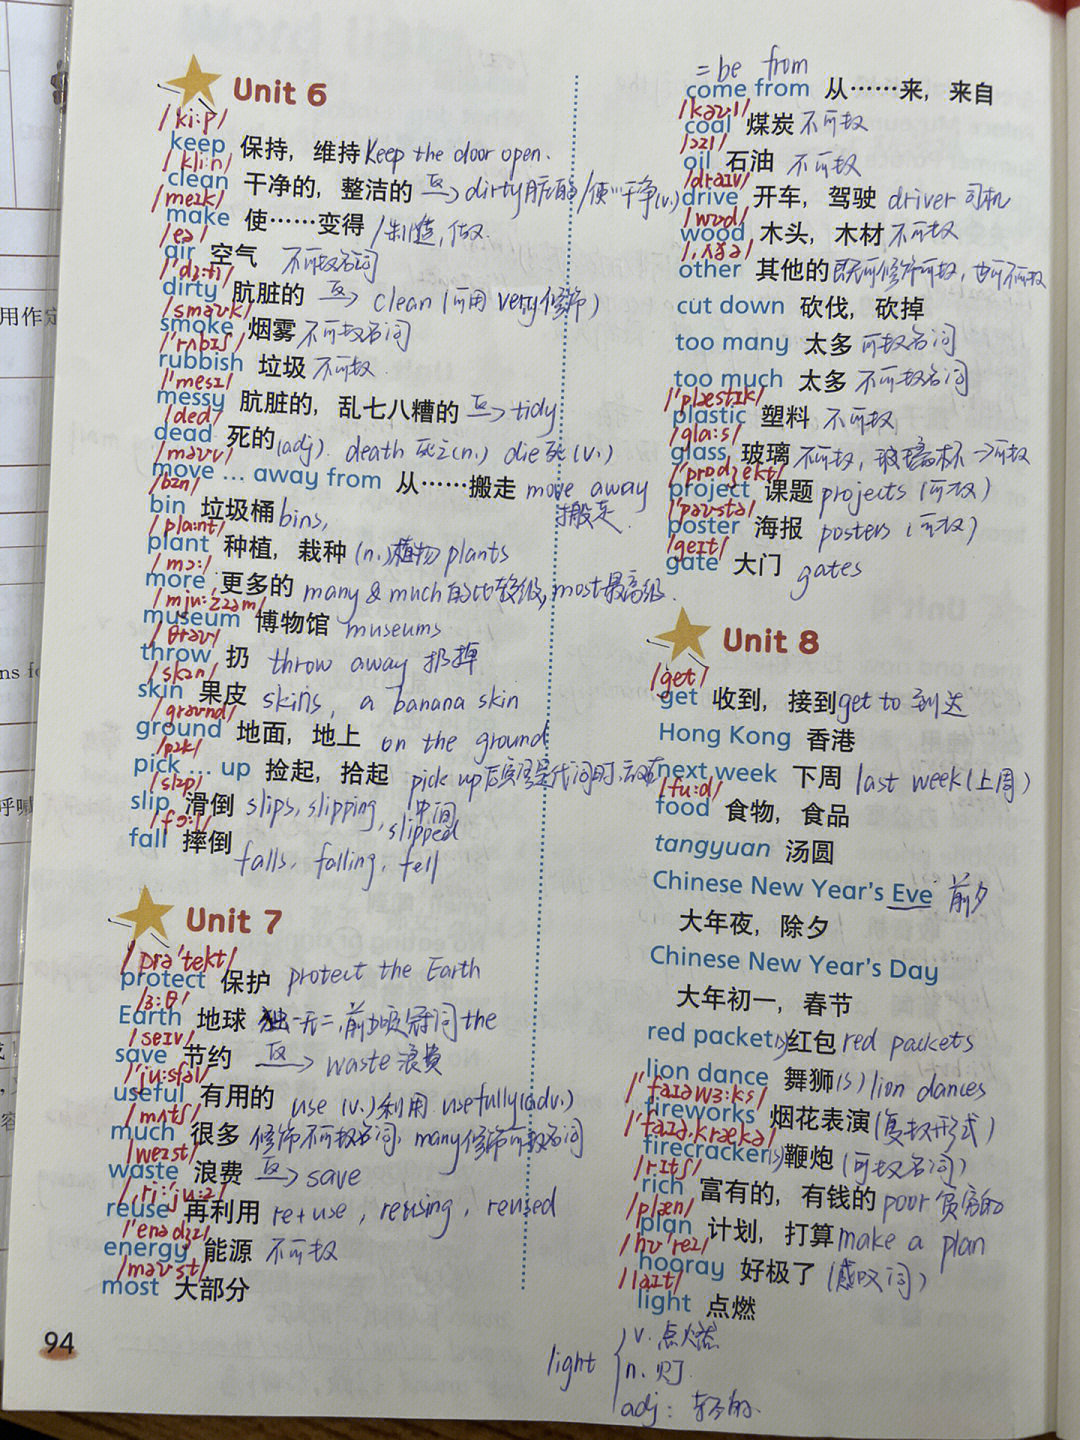 Unit 6
/ki:p/
keep 保持，维持 keep the door open.
/kli:n/
clean 干净的，整洁的 反→ dirty 脏的 /使…干净(v.)
/meɪk/
make 使……变得 /制造，做.
/eə/
air 空气 不可数名词
/'dɜ:tɪ/
dirty 肮脏的 反→ clean (可用very修饰)
/sməʊk/
smoke 烟雾 不可数名词
/'rʌbɪʃ/
rubbish 垃圾 不可数
/'mesɪ/
messy 肮脏的，乱七八糟的 反→ tidy
/ded/
dead 死的 (adj). death 死亡(n.) die 死(v.)
/məʊv/
move … away from 从……搬走 move away 搬走
/bɪn/
bin 垃圾桶 bins,
/plɑ:nt/
plant 种植，栽种 (n.)植物 plants
/mɔ:/
more 更多的 many & much的比较级, most最高级.
/mju:'zɪəm/
museum 博物馆 museums
/θrəʊ/
throw 扔 throw away 扔掉
/skɪn/
skin 果皮 skins, a banana skin
/graʊnd/
ground 地面，地上 on the ground
/pɪk/
pick … up 捡起，拾起 pick up后宾语是代词时,放在中间
/slɪp/
slip 滑倒 slips, slipping, slipped
/fɔ:l/
fall 摔倒 falls, falling, fell
Unit 7
/prə'tekt/
protect 保护 protect the Earth
/ɜ:θ/
Earth 地球 独一无二，前加定冠词the
/seɪv/
save 节约 反→ waste 浪费
/'ju:sfəl/
useful 有用的 use (v.)利用 usefully(adv.)
/mʌtʃ/
much 很多 修饰不可数名词, many修饰可数名词
/weɪst/
waste 浪费 反→ save
/ˌri:'ju:z/
reuse 再利用 re+use, reusing, reused
/'enədʒɪ/
energy 能源 不可数
/məʊst/
most 大部分
94
= be from
come from 从……来，来自
/kəʊl/
coal 煤炭 不可数
/ɔɪl/
oil 石油 不可数
/draɪv/
drive 开车，驾驶 driver 司机
/wʊd/
wood 木头，木材 不可数
/'ʌðə/
other 其他的 既可修饰可数，也可不可数
cut down 砍伐，砍掉
too many 太多 可数名词
too much 太多 不可数名词
/'plæstɪk/
plastic 塑料 不可数
/glɑ:s/
glass 玻璃 不可数，玻璃杯→可数
/'prɒdʒekt/
project 课题 projects (可数)
/'pəʊstə/
poster 海报 posters (可数)
/geɪt/
gate 大门 gates
Unit 8
/get/
get 收到，接到 get to 到达
Hong Kong 香港
next week 下周 last week(上周)
/fu:d/
food 食物，食品
tangyuan 汤圆
Chinese New Year's Eve 前夕
大年夜，除夕
Chinese New Year's Day
大年初一，春节
red packet(s) 红包 red packets
lion dance 舞狮(s) lion dances
/'faɪəwɜ:ks/
fireworks 烟花表演 (复数形式)
/'faɪəˌkrækə/
firecracker(s) 鞭炮 (可数名词)
/rɪtʃ/
rich 富有的，有钱的 poor 贫穷的
/plæn/
plan 计划，打算 make a plan
/hʊ'reɪ/
hooray 好极了 (感叹词)
/laɪt/
light 点燃
light
v. 点燃
n. 灯
adj: 轻的.